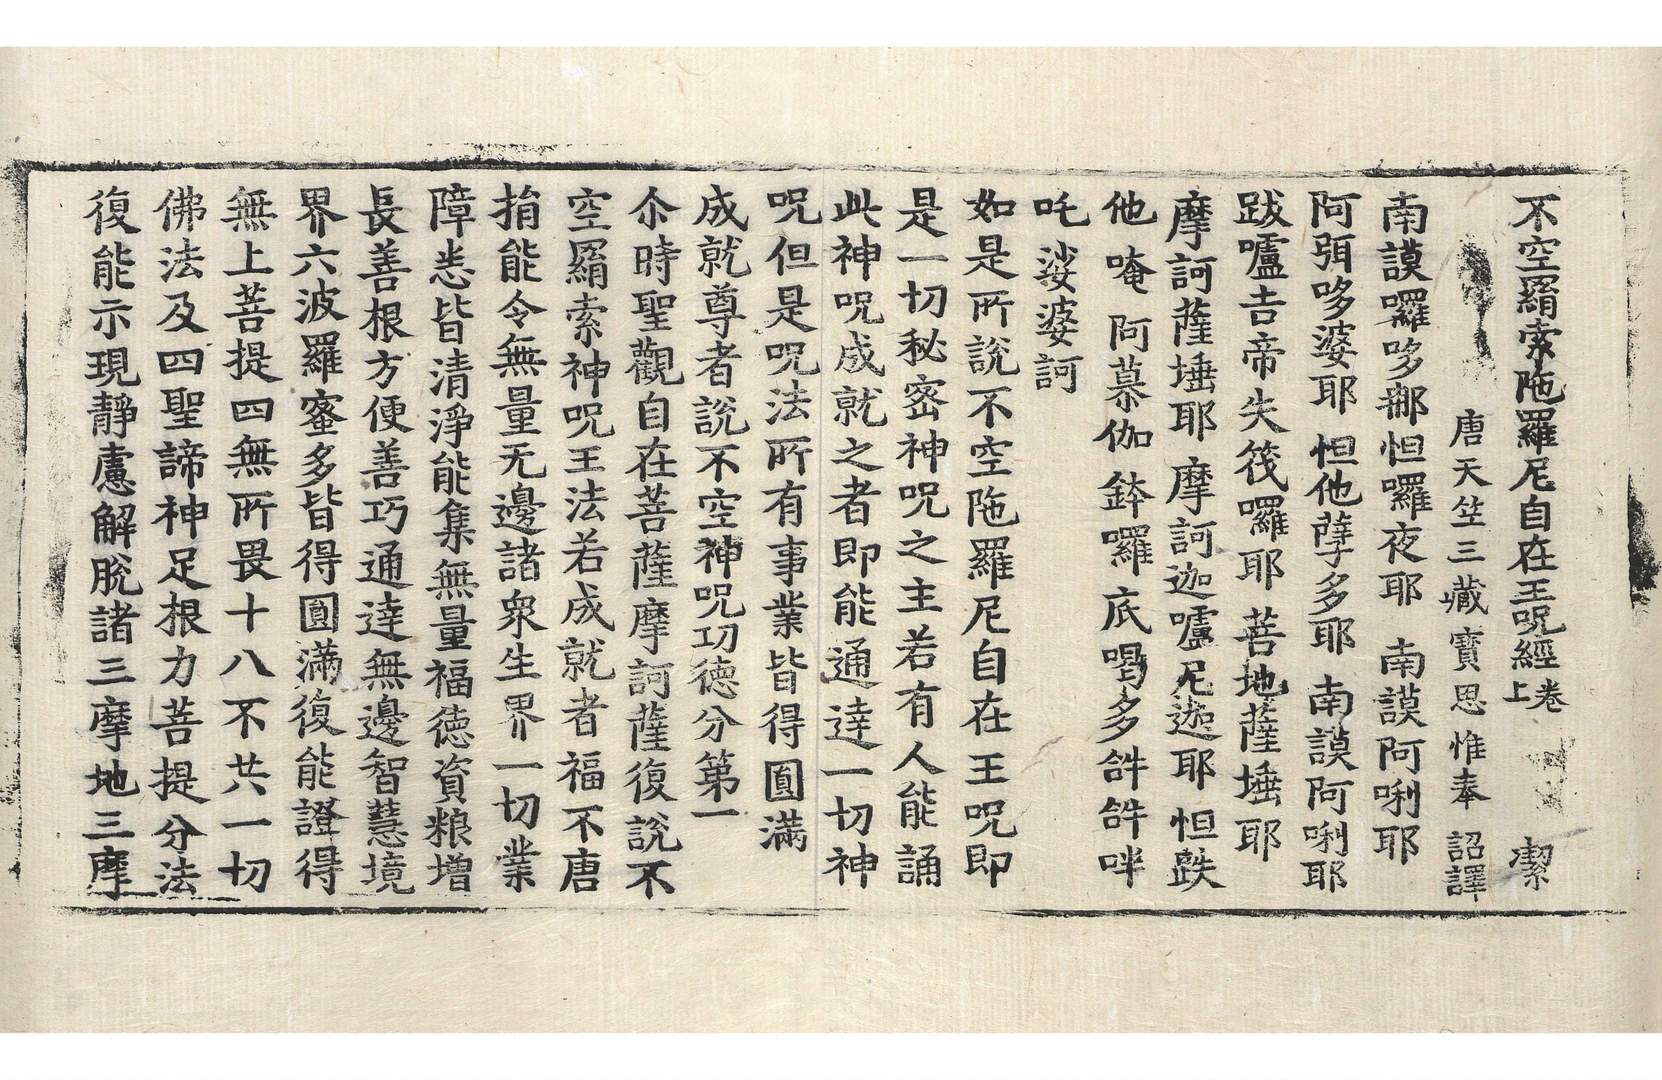 不空羂索陁羅尼自在王呪經卷上 潔
唐天竺三藏寶思惟奉 詔譯
南謨囉哆那怛囉夜耶 南謨阿唎耶
阿弭哆婆耶 怛他孽多耶 南謨阿唎耶
跋嚧吉帝失筏囉耶 菩地薩埵耶
摩訶薩埵耶 摩訶迦嚧尼迦耶 怛跌
他 唵 阿慕伽 鉢囉底喝多 𤙖𤙖 吽
吒 娑婆訶
如是所說不空陁羅尼自在王呪即
是一切秘密神呪之主若有人能誦
此神呪成就之者即能通達一切神
呪但是呪法所有事業皆得圓滿
成就尊者說不空神呪功德分第一
尒時聖觀自在菩薩摩訶薩復說不
空羂索神呪王法若成就者福不唐
捐能令無量无邊諸衆生界一切業
障悉皆清淨能集無量福德資粮增
長善根方便善巧通達無邊智慧境
界六波羅蜜多皆得圓滿復能證得
無上菩提四無所畏十八不共一切
佛法及四聖諦神足根力菩提分法
復能示現靜慮解脫諸三摩地三摩